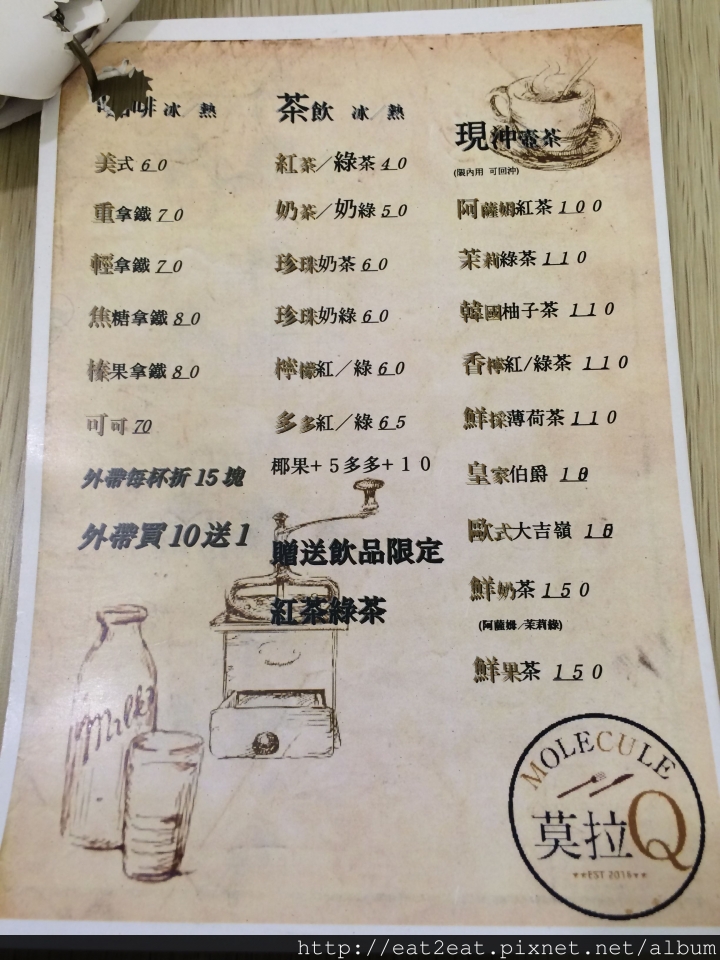 咖啡 冰/熱
美式 60
重拿鐵 70
輕拿鐵 70
焦糖拿鐵 80
榛果拿鐵 80
可可 70
外帶每杯折 15 塊
外帶買10送1
茶飲 冰/熱
紅茶/綠茶 40
奶茶/奶綠 50
珍珠奶茶 60
珍珠奶綠 60
檸檬紅/綠 60
多多紅/綠 65
椰果+5多多+10
贈送飲品限定
紅茶綠茶
現沖壺茶
(限內用 可回沖)
阿薩姆紅茶 100
茉莉綠茶 110
韓國柚子茶 110
香檸紅/綠茶 110
鮮採薄荷茶 110
皇家伯爵
歐式大吉嶺
鮮奶茶 150
(阿薩姆/茉莉綠)
鮮果茶 150
Milk
MOLECULE
莫拉Q
EST 2016
http://eat2eat.pixnet.net/album